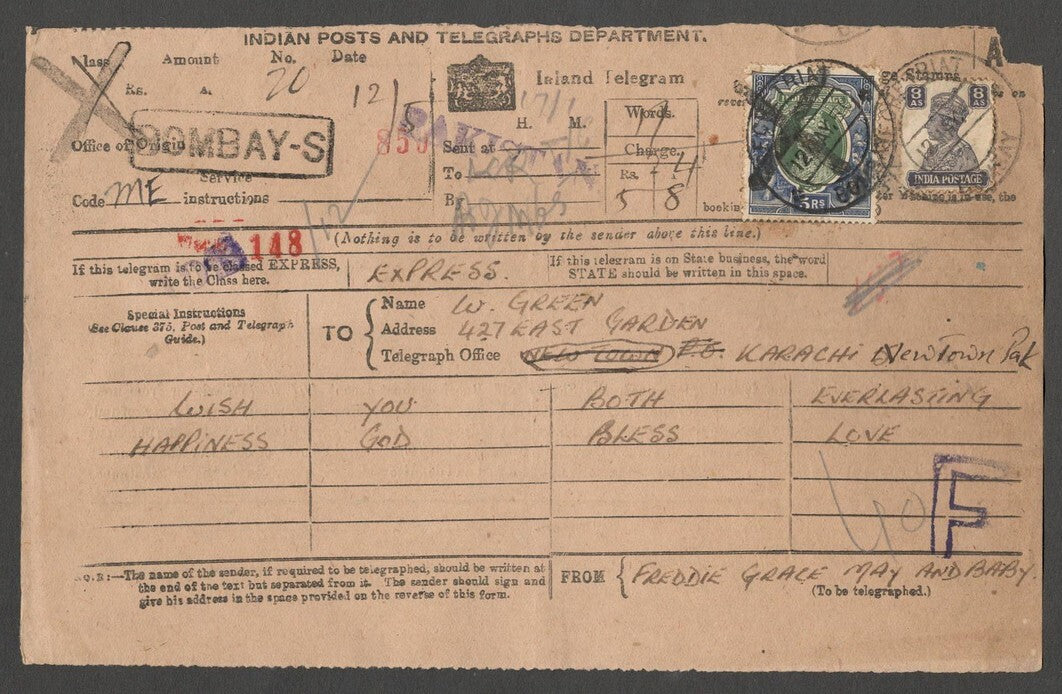 INDIAN POSTS AND TELEGRAPHS DEPARTMENT.
Class Amount No. Date
Rs. A. 20 12/5
Inland Telegram
A
Stamps
Office of Origin BOMBAY-S
Code ME Service instructions
H. M.
Sent at
To
By
PAKISTAN
17/1
Words.
Charge.
Rs.
5 8
SECRETARIAT BOMBAY
12 MAY
5 RS
8 AS 8 AS
INDIA POSTAGE
(Nothing is to be written by the sender above this line.)
148
If this telegram is to be classed EXPRESS, write the Class here.
EXPRESS
If this telegram is on State business, the word
STATE should be written in this space.
Special Instructions
See Clause 375, Post and Telegraph
Guide.)
TO
Name W. GREEN
Address 427 EAST GARDEN
Telegraph Office NEW TOWN P.O. KARACHI New Town Pak
WISH YOU BOTH EVERLASTING
HAPPINESS GOD BLESS LOVE
40 F
N.B:—The name of the sender, if required to be telegraphed, should be written at
the end of the text but separated from it. The sender should sign and
give his address in the space provided on the reverse of this form.
FROM FREDDIE GRACE MAY AND BABY
(To be telegraphed.)